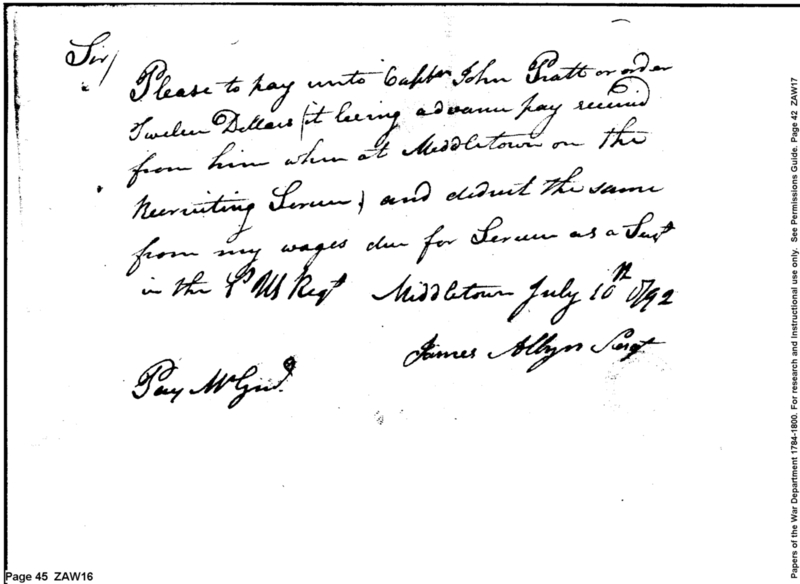 Sir/
Please to pay unto Captn John Pratt or order
Twelve Dollars (it being advance pay received
from him when at Middletown on the
Recruiting Service) and deduct the same
from my wages due for Service as a Sergt
in the US Regt Middletown July 10th 1792
James Allyn Sergt
Pay Mr Genl
Page 45 ZAW16
Papers of the War Department 1784-1800. For research and instructional use only. See Permissions Guide. Page 42 ZAW17